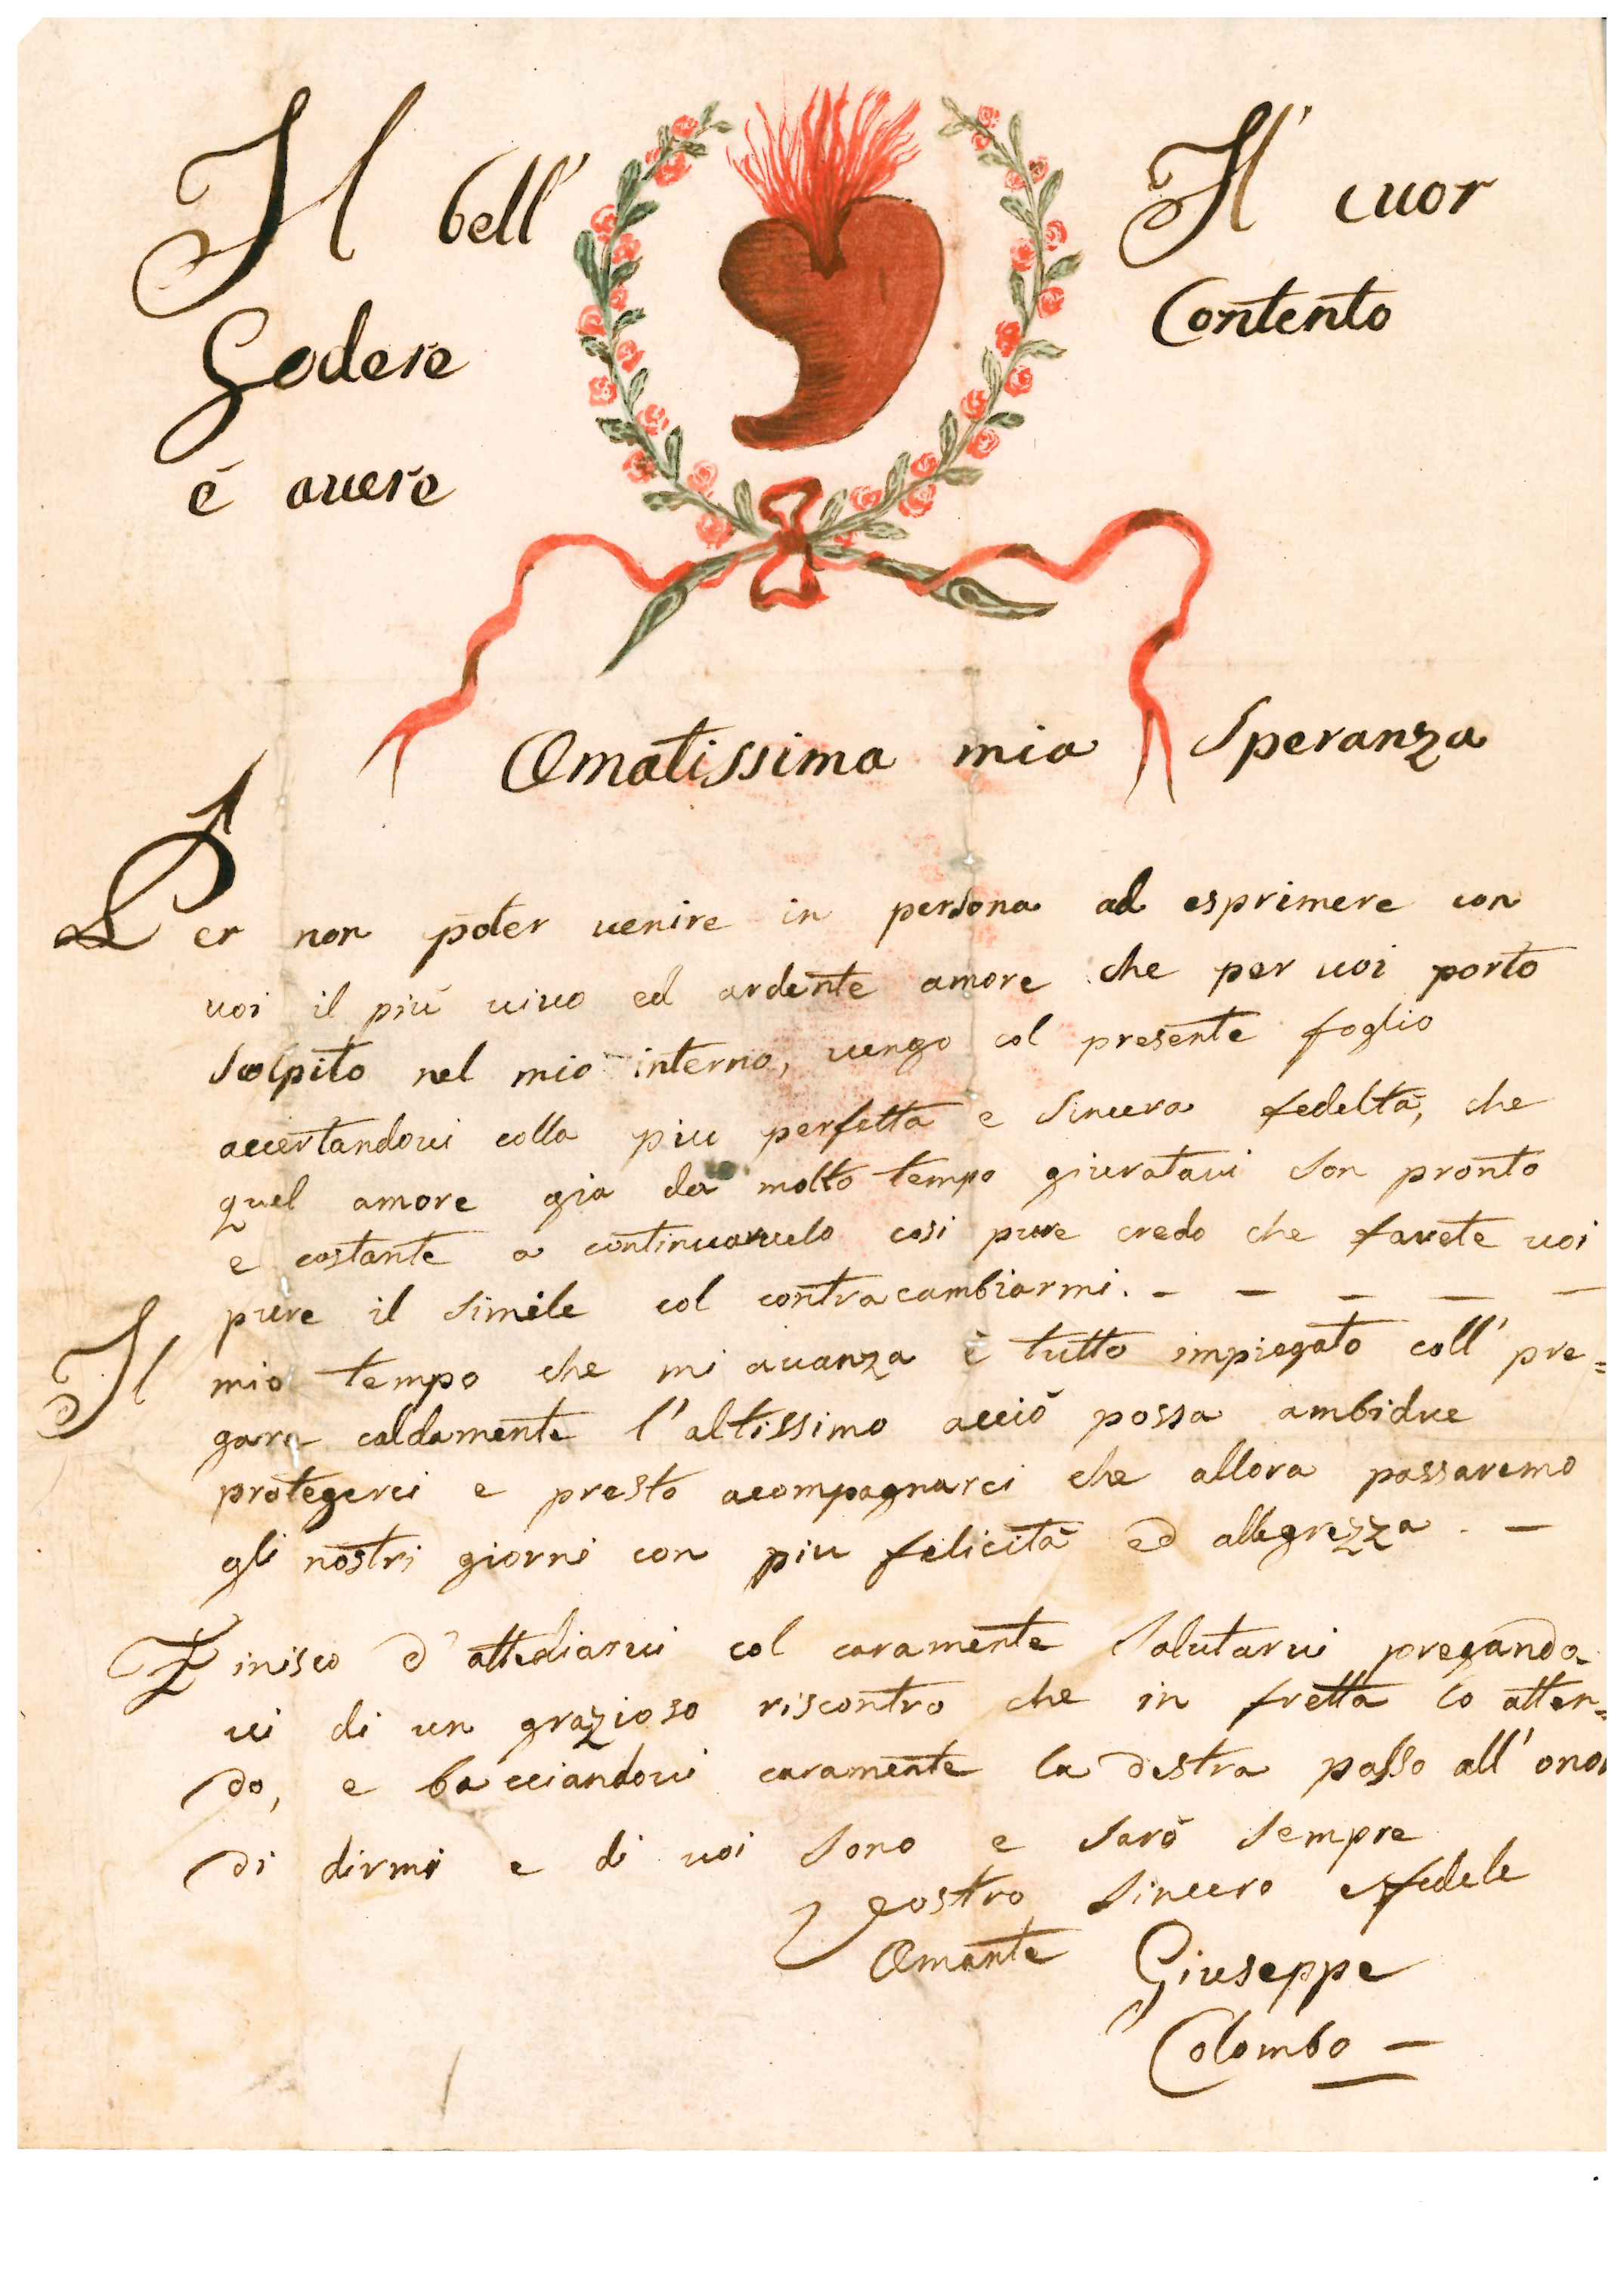 Il bell'
Godere
è avere
Il' cuor
Contento
Amatissima mia Speranza
Per non poter venire in persona ad esprimere con
voi il più vivo ed ardente amore che per voi porto
Scolpito nel mio interno, vengo col presente foglio
accertandovi colla piu perfetta e Sincera fedeltà, che
quel amore gia da molto tempo giuratavi Son pronto
e costante a continuarvelo cosi pure credo che farete voi
pure il Simile col contracambiarmi. - - - - -
Il mio tempo che mi avanza è tutto impiegato coll' pre=
gare caldamente l'altissimo acciò possa ambidue
protegerci e presto acompagnarci che allora passaremo
gli nostri giorni con piu felicità ed allegrezza. -
Finisco d'attediarvi col caramente Salutarvi pregando=
vi di un grazioso riscontro che in fretta lo atten=
do, e bacciandovi caramente la destra passo all'
di dirmi e di voi Sono e Sarò Sempre
Vostro Sincero e fedele
Amante Giuseppe
Colombo -